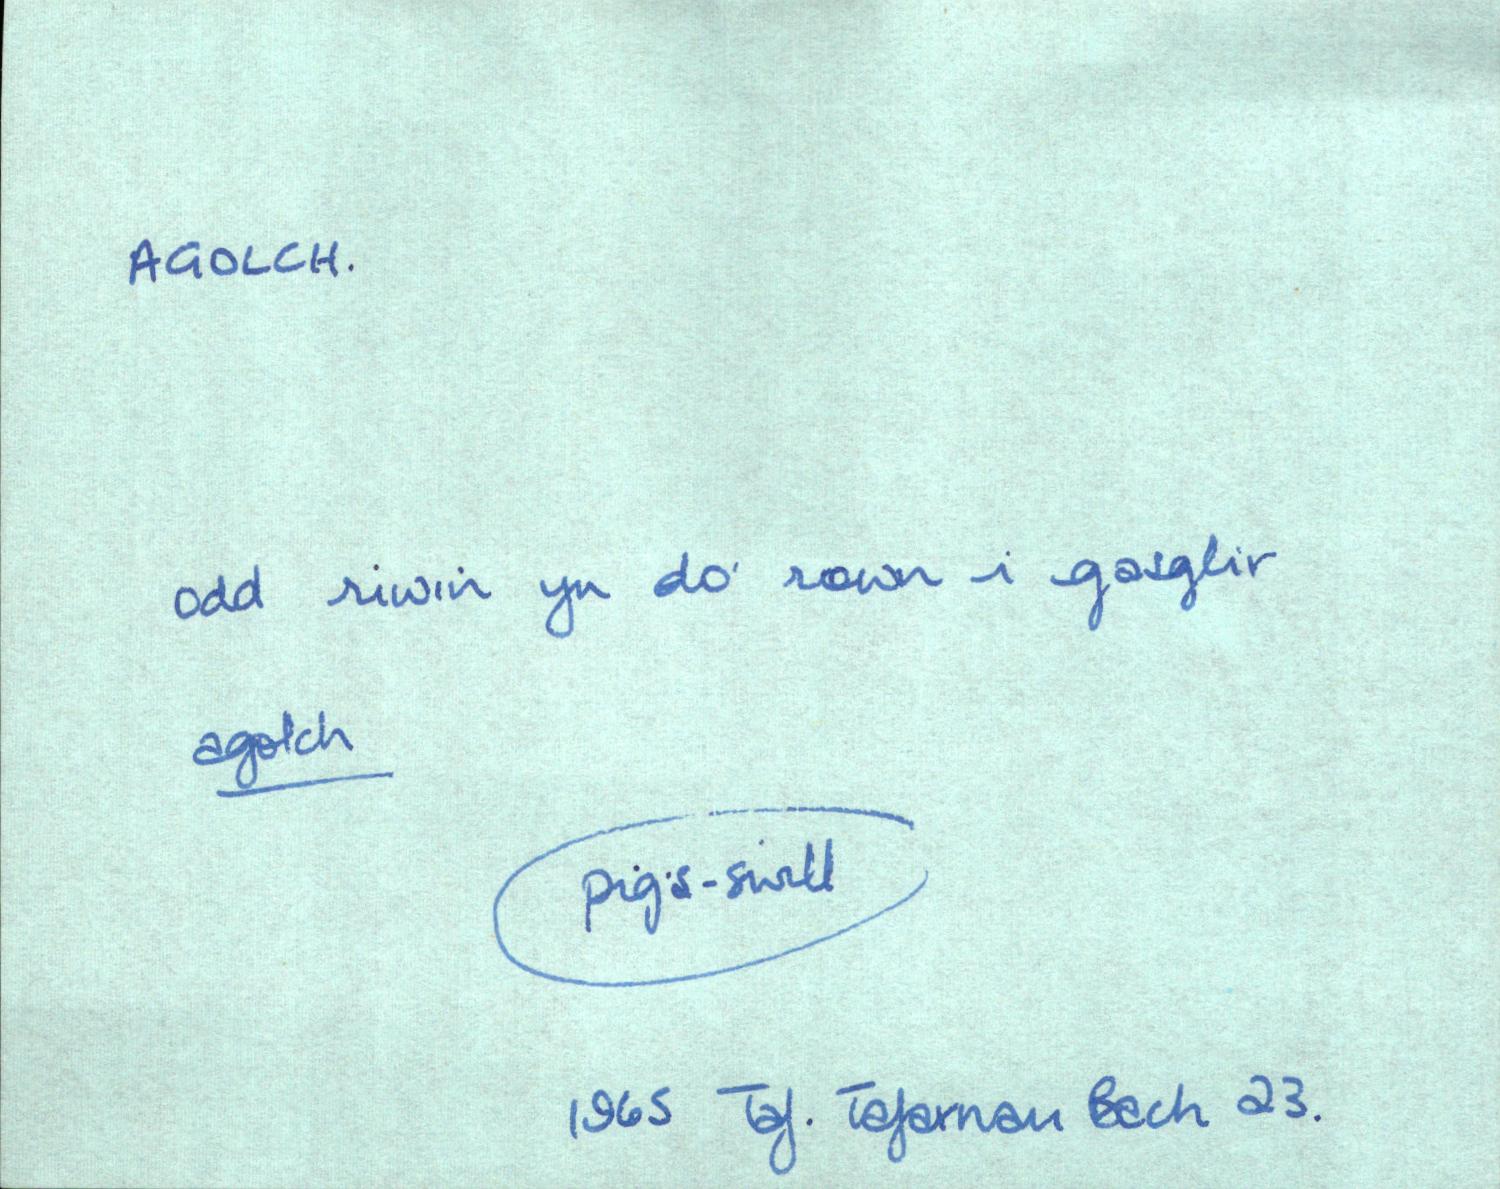 AGOLCH.
odd riwin yn do' rown i gasglir
agolch
pig's-swill
1965 Taf. Tafarnau Bach 23.